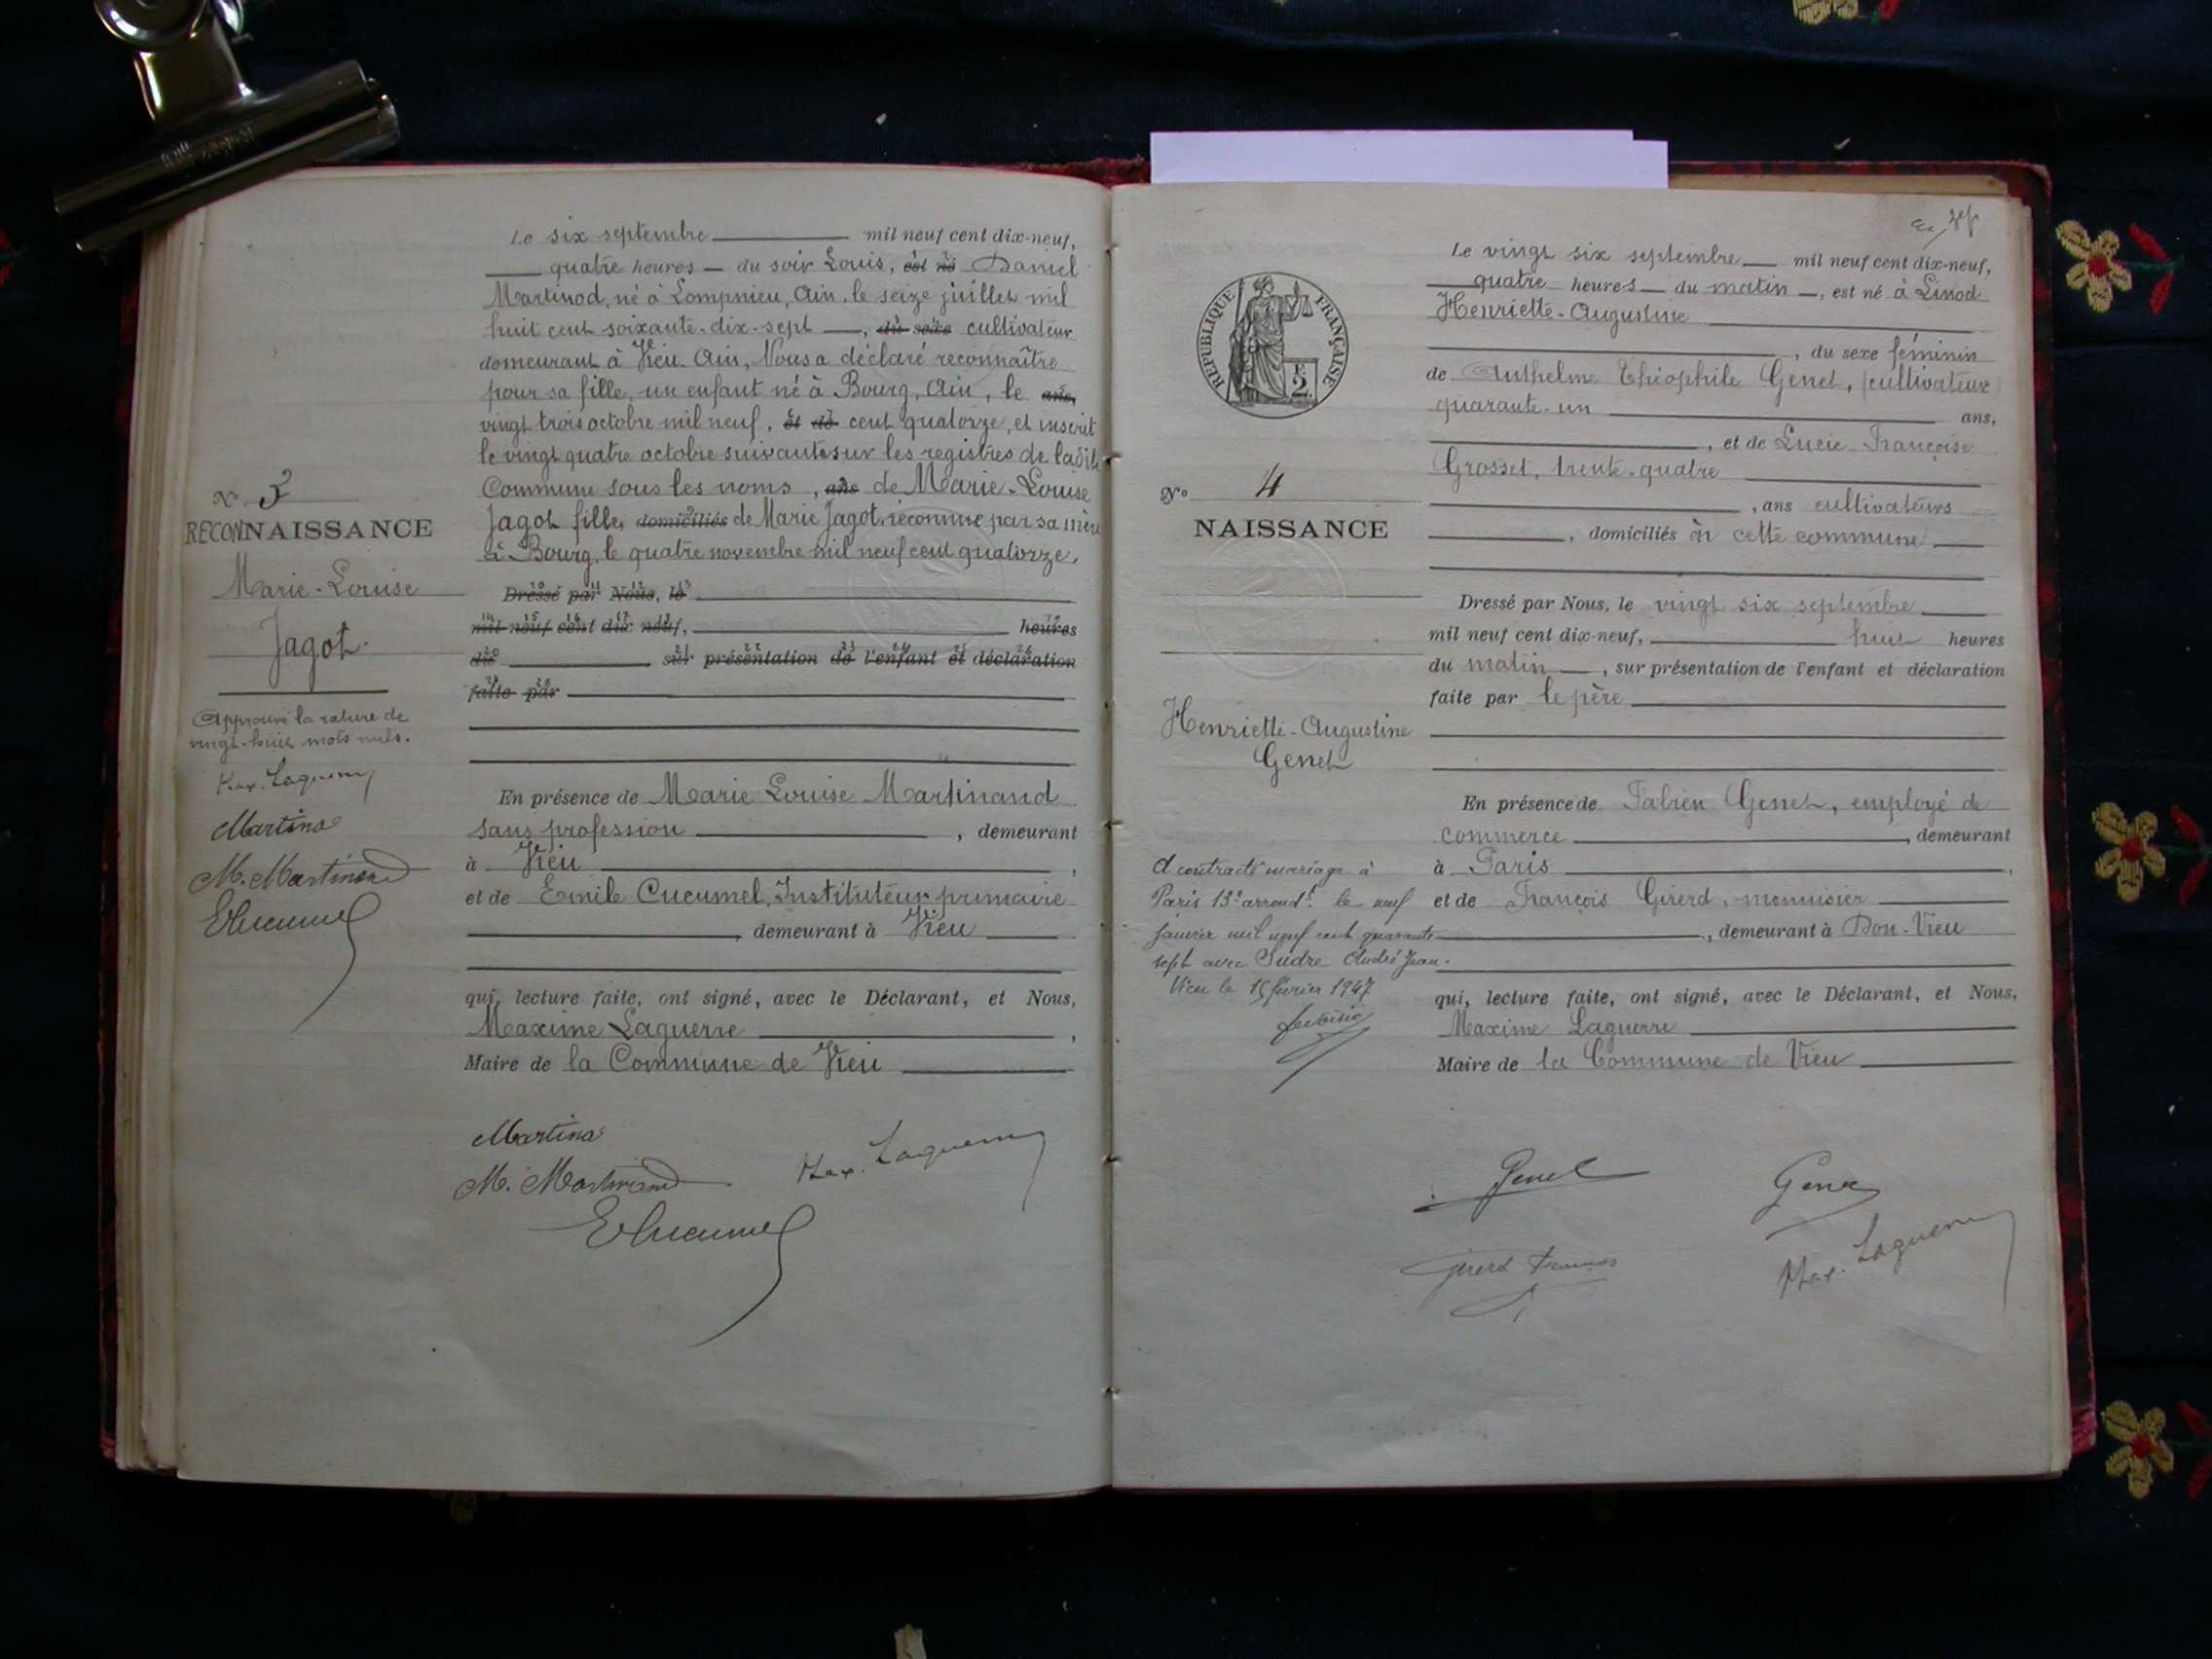 Le six septembre mil neuf cent dix-neuf,
quatre heures du soir Louis, est né Daniel
Martinod, né à Lompnieu, Ain, le seize juillet mil
huit cent soixante-dix-sept, du sexe cultivateur
demeurant à Vieu. Ain, Nous a déclaré reconnaître
pour sa fille, un enfant né à Bourg, Ain, le ans,
vingt trois octobre mil neuf, et de cent quatorze, et inscrit
le vingt quatre octobre suivant sur les registres de ladite
Commune sous les noms, ans de Marie-Louise
Jagot fille, domiciliés de Marie Jagot, reconnue par sa mère
à Bourg, le quatre novembre mil neuf cent quatorze.
N° 3
RECONNAISSANCE
Marie-Louise
Jagot
Approuvé la rature de
vingt-huit mots nuls.
Max. Laguerre
Martinod
M. Martinand
ECucumel
Dressé par Nous, le
mil neuf cent dix-neuf, heures
du sur présentation de l'enfant et déclaration
faite par
En présence de Marie Louise Martinand
sans profession, demeurant
à Vieu,
et de Emile Cucumel, Instituteur primaire
, demeurant à Vieu
qui, lecture faite, ont signé, avec le Déclarant, et Nous,
Maxime Laguerre,
Maire de la Commune de Vieu
Martinod
M. Martinand
Max. Laguerre
ECucumel
RÉPUBLIQUE FRANÇAISE
2
N° 4
NAISSANCE
Henriette-Augustine
Genet
A contracté mariage à
Paris 13e arrondt. le neuf
janvier mil neuf cent quarante
sept avec Sudre André Jean.
Vieu le 15 février 1947
Le vingt six septembre mil neuf cent dix-neuf,
quatre heures du matin, est né à Linod
Henriette-Augustine
, du sexe féminin
de Anthelme Théophile Genet, cultivateur
quarante-un ans,
, et de Lucie-Françoise
Grosset, trente-quatre
, ans cultivateurs
, domiciliés en cette commune
Dressé par Nous, le vingt six septembre
mil neuf cent dix-neuf, huit heures
du matin, sur présentation de l'enfant et déclaration
faite par le père
En présence de Fabien Genet, employé de
commerce, demeurant
à Paris,
et de François Girerd, menuisier
, demeurant à Don-Vieu
qui, lecture faite, ont signé, avec le Déclarant, et Nous,
Maxime Laguerre
Maire de la Commune de Vieu
Genet
Genet
Girerd François
Max. Laguerre